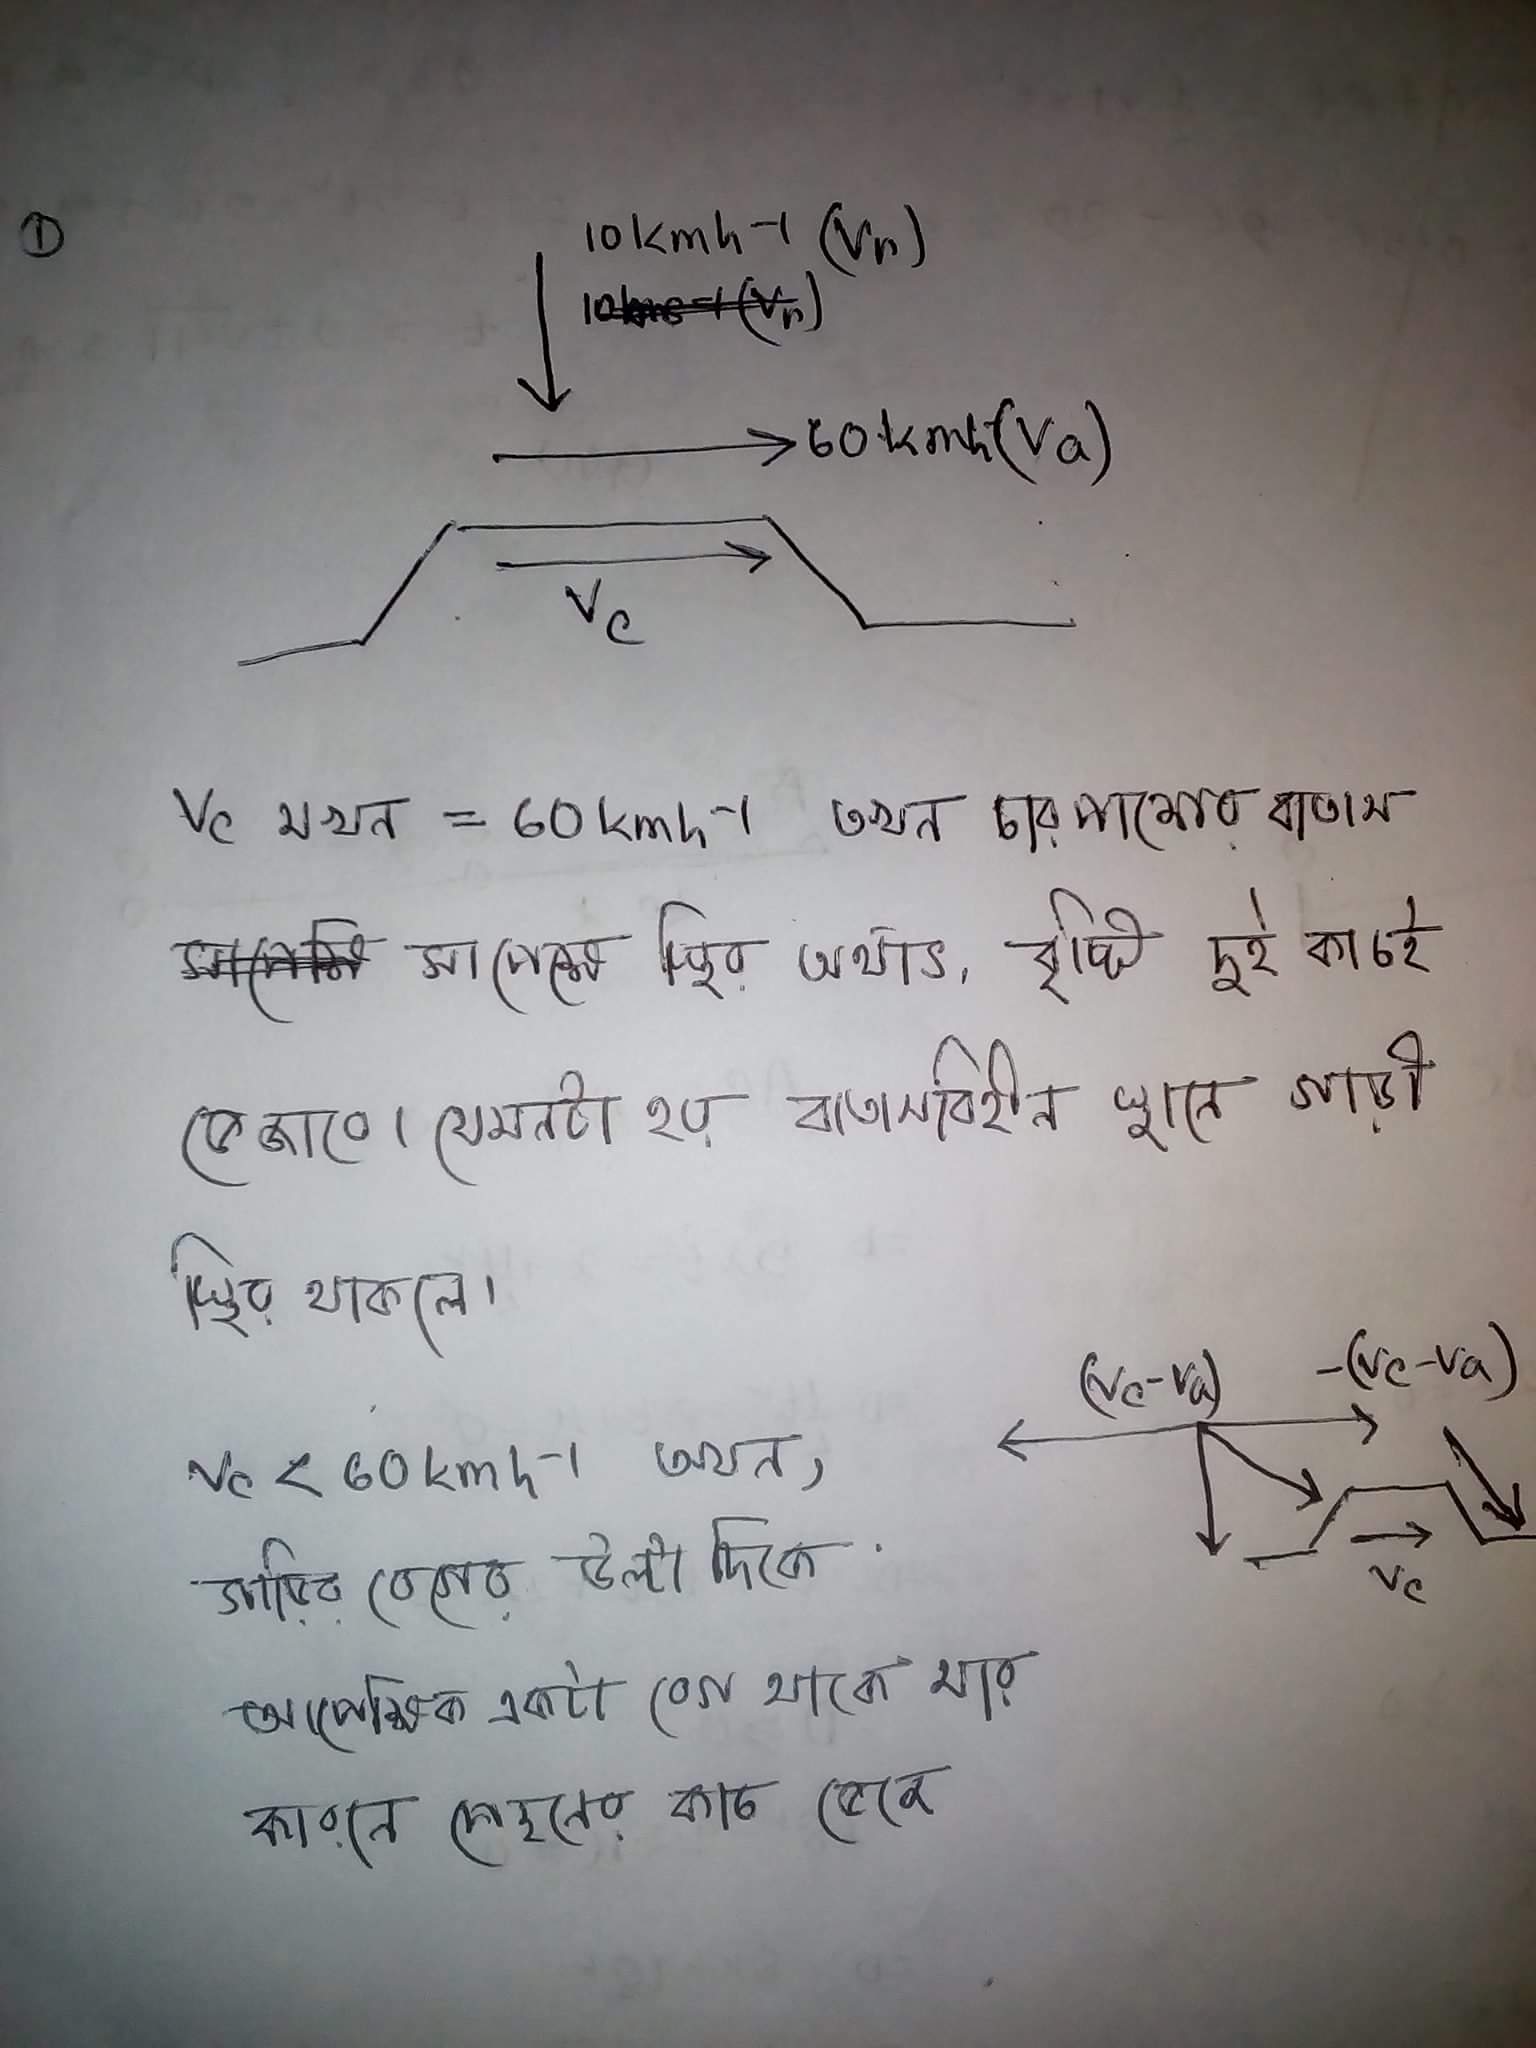 ①
10kmh-1 (Vr)
60kmh-(Va)
Vc
Vc যখন = 60kmh-1 তখন চারপাশের বাতাস
সাপেক্ষে স্থির অর্থাৎ, বৃষ্টি দুই কাচই
ভেজাবে। যেমনটা হয় বাতাসবিহীন স্থানে গাড়ী
স্থির থাকলে।
(Vc-Va) -(Vc-Va)
Vc < 60kmh-1 তখন,
Vc
গাড়ির বেগের উল্টা দিকে
আপেক্ষিক একটা বেগ থাকে যার
কারনে পেছনের কাচ ভেজে